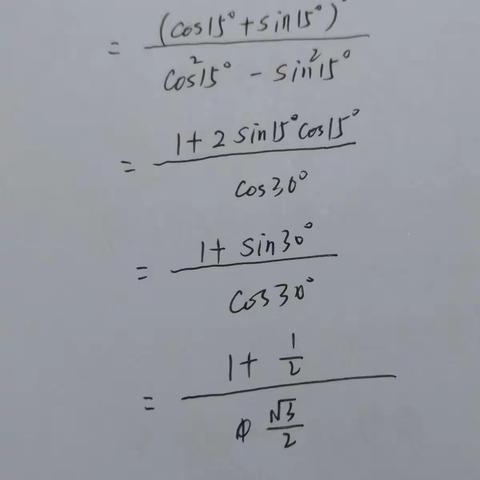 = (cos15° + sin15°)² / (cos²15° - sin²15°)
= (1 + 2 sin15° cos15°) / cos30°
= (1 + sin30°) / cos30°
= (1 + 1/2) / (√3/2)